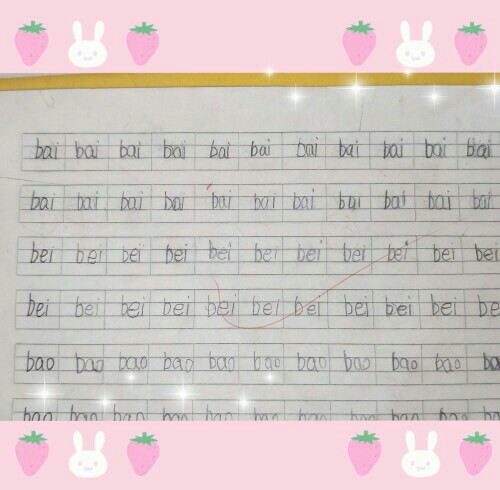 bai bai bai bai bai bai bai bai bai bai bai
bai bai bai bai bai bai bai bai bai bai bai
bei bei bei bei bei bei bei bei bei bei bei
bei bei bei bei bei bei bei bei bei bei be
bao bao bao bao bao bao bao bao bao bao bao
bao bao bao bao bao bao bao bao bao bao bao